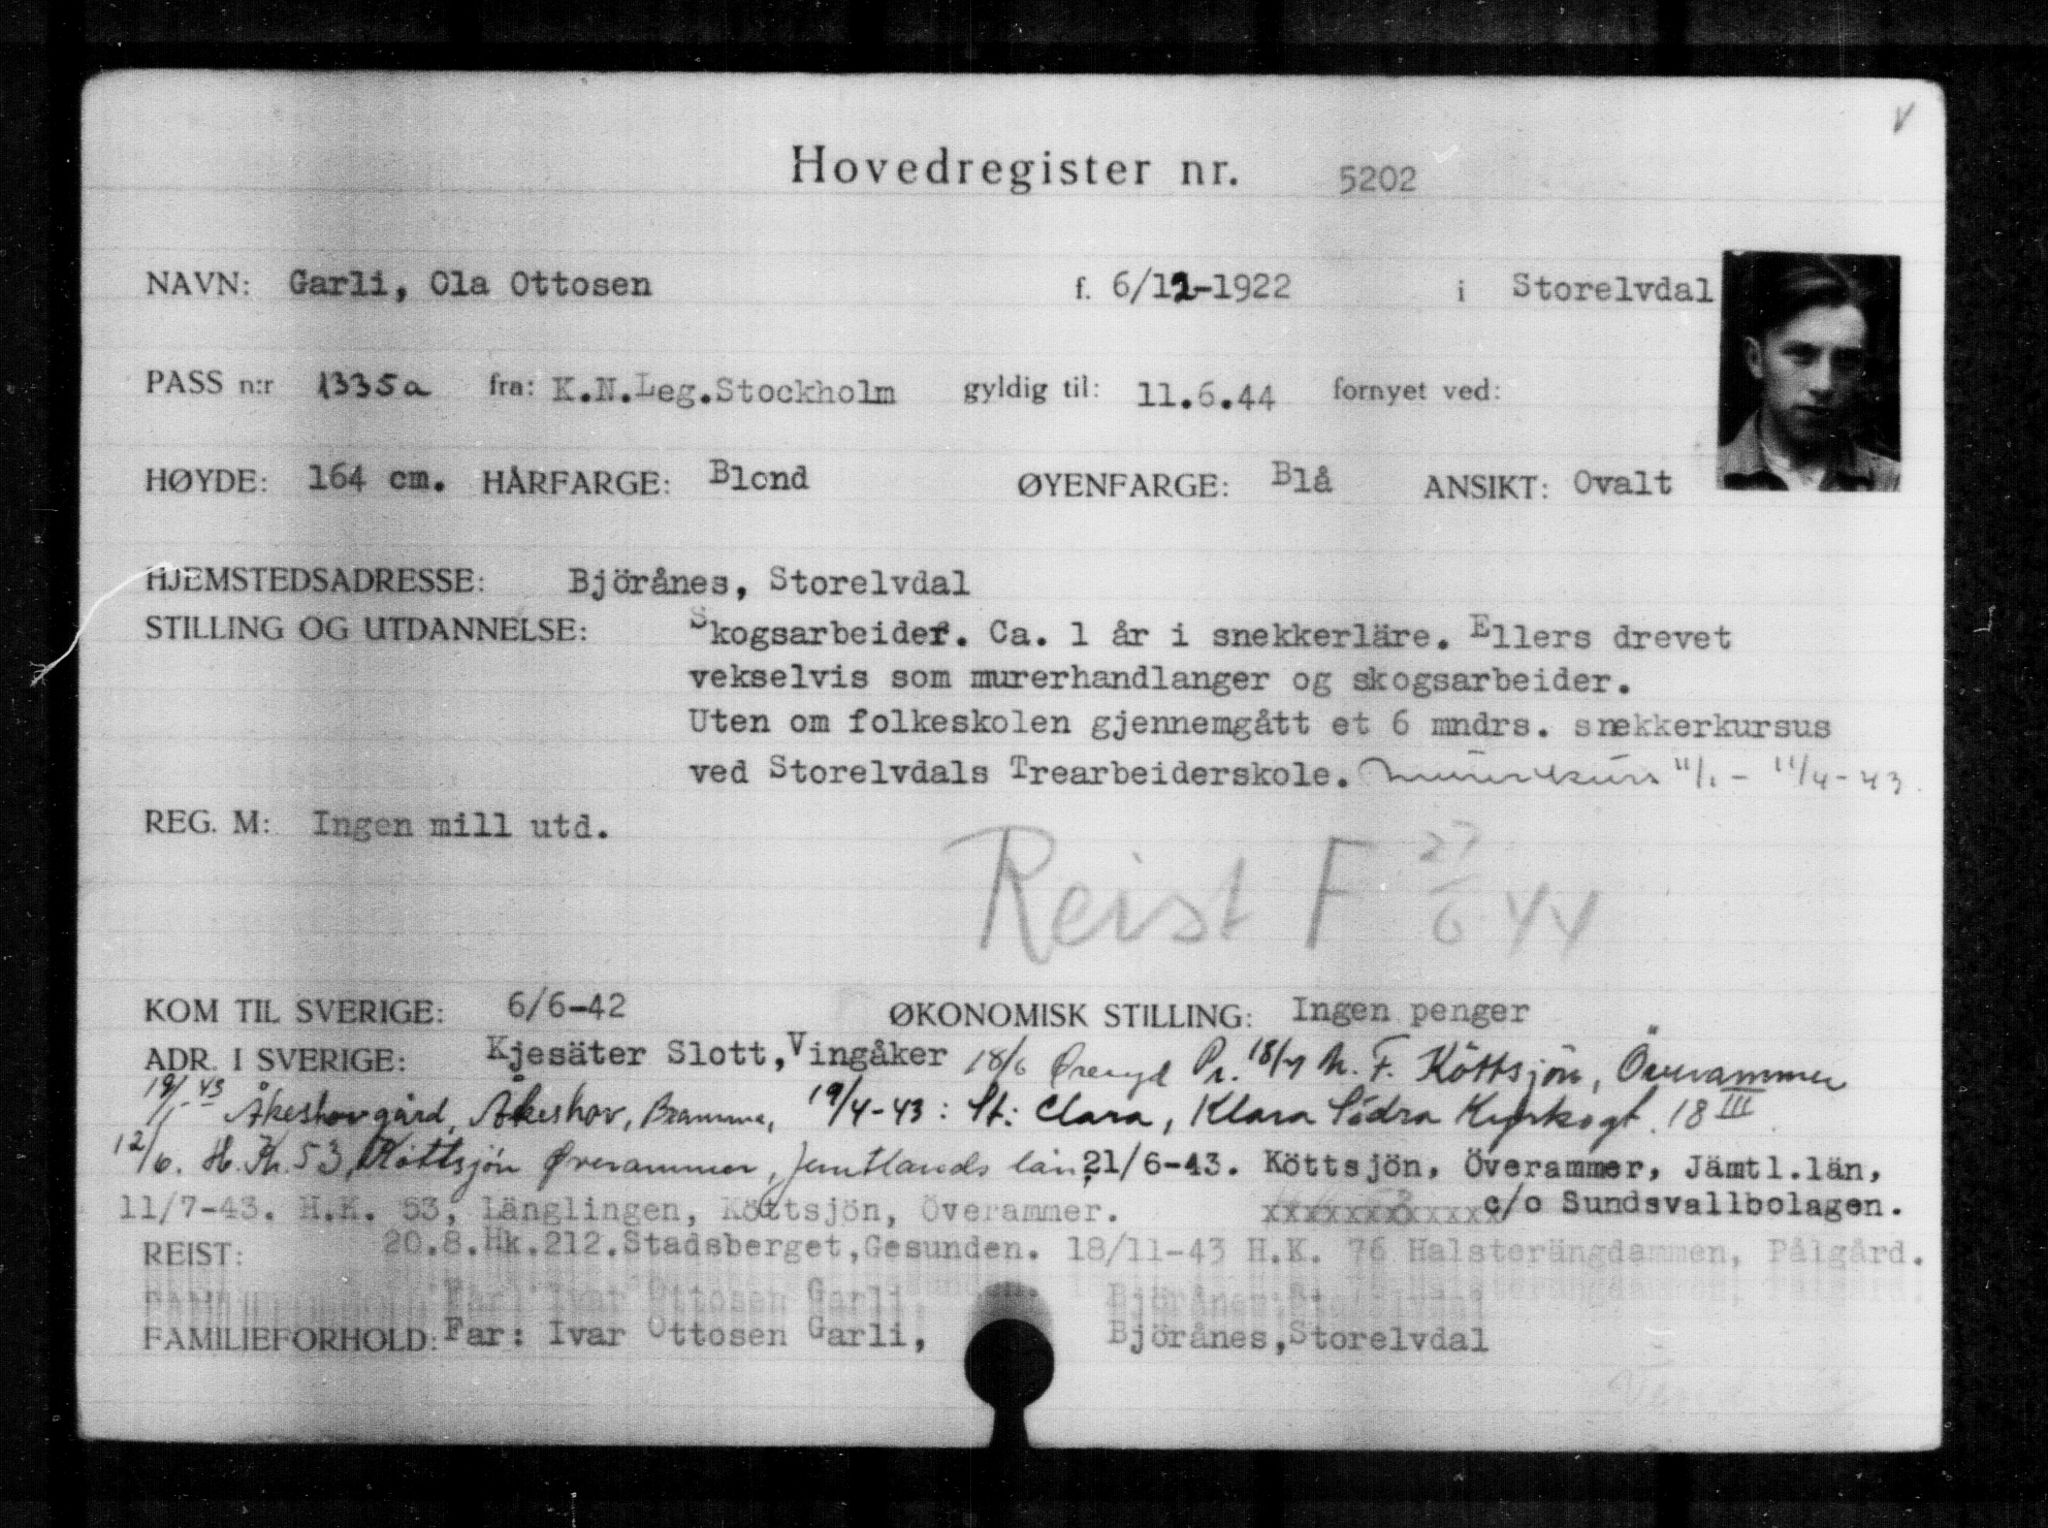 Hovedregister nr. 5202
NAVN: Garli, Ola Ottosen f. 6/12-1922 i Storelvdal
PASS n:r 1335a fra: K.N.Leg.Stockholm gyldig til: 11.6.44 fornyet ved:
HØYDE: 164 cm. HÅRFARGE: Blond ØYENFARGE: Blå ANSIKT: Ovalt
HJEMSTEDSADRESSE: Björånes, Storelvdal
STILLING OG UTDANNELSE: Skogsarbeider. Ca. 1 år i snekkerläre. Ellers drevet
vekselvis som murerhandlanger og skogsarbeider.
Uten om folkeskolen gjennemgått et 6 mndrs. snekkerkursus
ved Storelvdals Trearbeiderskole. 11/1 - 11/4-43.
REG. M: Ingen mill utd.
Reist F 27/6 44
KOM TIL SVERIGE: 6/6-42 ØKONOMISK STILLING: Ingen penger
ADR. I SVERIGE: Kjesäter Slott, Vingåker 18/6 Pr. 18/7 Köttsjön, Överammer
19/1 43 Åkeshovgård, Åkeshov, Bromma, 19/4-43: St: Clara, Klara Södra Kyrkogt. 18 III
12/6. H.K. 53, Köttsjön Øverammer, Jemtlands län, 21/6-43. Köttsjön, Överammer, Jämtl.län,
11/7-43. H.K. 53, Länglingen, Köttsjön, Överammer. c/o Sundsvallbolagen.
REIST: 20.8.Hk.212.Stadsberget,Gesunden. 18/11-43 H.K. 76 Halsterängdammen, Pålgård.
FAMILIEFORHOLD: Far: Ivar Ottosen Garli, Björånes,Storelvdal